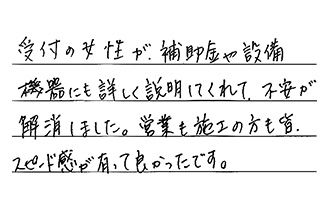 受付の女性が、補助金や設備
機器にも詳しく説明してくれて、不安が
解消しました。営業も施工の方も皆、
スピード感が有って良かったです。